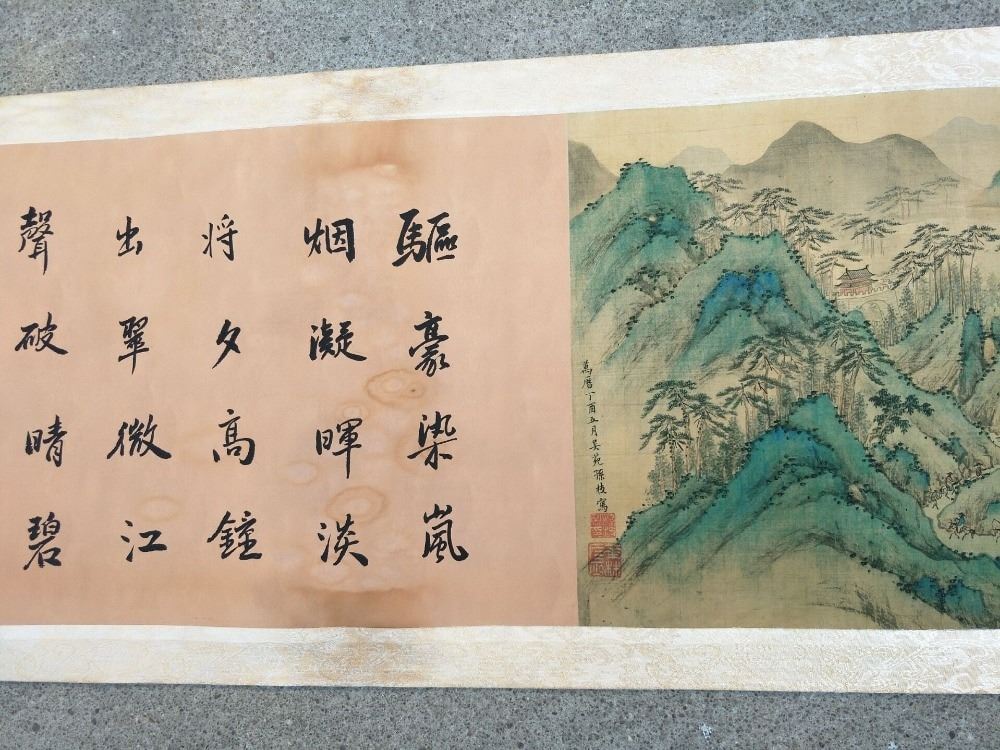 萬曆丁酉五月吳苑孫枝寫
驅豪染嵐
烟凝暉淡
将夕高鐘
出翠微江
聲破晴碧